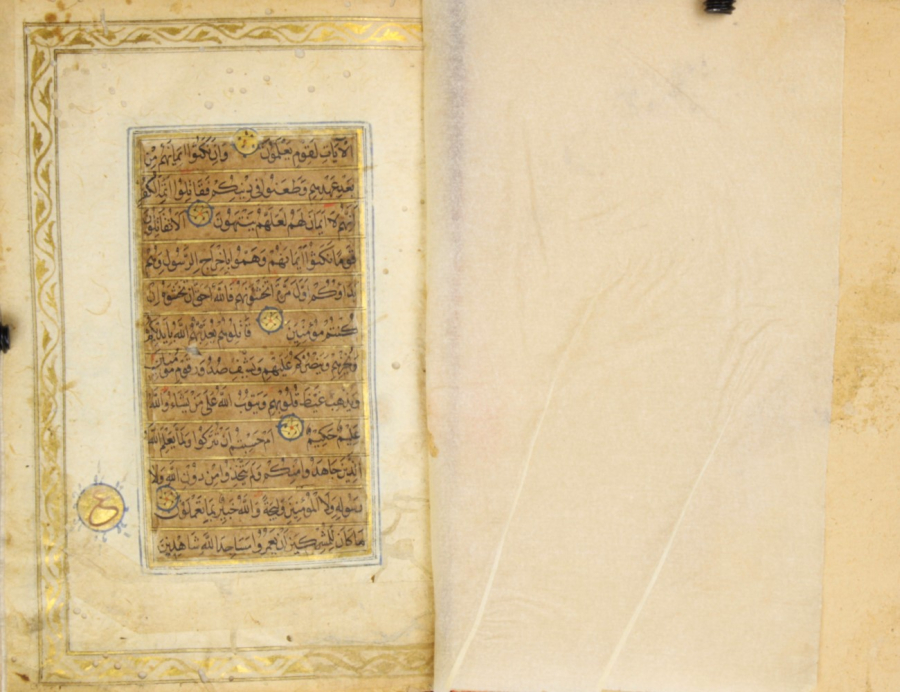 الآيَاتِ لِقَوْمٍ يَعْلَمُونَ وَإِنْ نَكَثُوا أَيْمَانَهُمْ مِنْ
بَعْدِ عَهْدِهِمْ وَطَعَنُوا فِي دِينِكُمْ فَقَاتِلُوا أَئِمَّةَ الْكُفْرِ
إِنَّهُمْ لَا أَيْمَانَ لَهُمْ لَعَلَّهُمْ يَنْتَهُونَ أَلَا تُقَاتِلُونَ
قَوْمًا نَكَثُوا أَيْمَانَهُمْ وَهَمُّوا بِإِخْرَاجِ الرَّسُولِ وَهُمْ
بَدَأُوكُمْ أَوَّلَ مَرَّةٍ أَتَخْشَوْنَهُمْ فَاللَّهُ أَحَقُّ أَنْ تَخْشَوْهُ إِنْ
كُنْتُمْ مُؤْمِنِينَ قَاتِلُوهُمْ يُعَذِّبْهُمُ اللَّهُ بِأَيْدِيكُمْ
وَيُخْزِهِمْ وَيَنْصُرْكُمْ عَلَيْهِمْ وَيَشْفِ صُدُورَ قَوْمٍ مُؤْمِنِينَ
وَيُذْهِبْ غَيْظَ قُلُوبِهِمْ وَيَتُوبُ اللَّهُ عَلَى مَنْ يَشَاءُ وَاللَّهُ
عَلِيمٌ حَكِيمٌ أَمْ حَسِبْتُمْ أَنْ تُتْرَكُوا وَلَمَّا يَعْلَمِ اللَّهُ
الَّذِينَ جَاهَدُوا مِنْكُمْ وَلَمْ يَتَّخِذُوا مِنْ دُونِ اللَّهِ وَلَا
رَسُولِهِ وَلَا الْمُؤْمِنِينَ وَلِيجَةً وَاللَّهُ خَبِيرٌ بِمَا تَعْمَلُونَ
مَا كَانَ لِلْمُشْرِكِينَ أَنْ يَعْمُرُوا مَسَاجِدَ اللَّهِ شَاهِدِينَ
ع